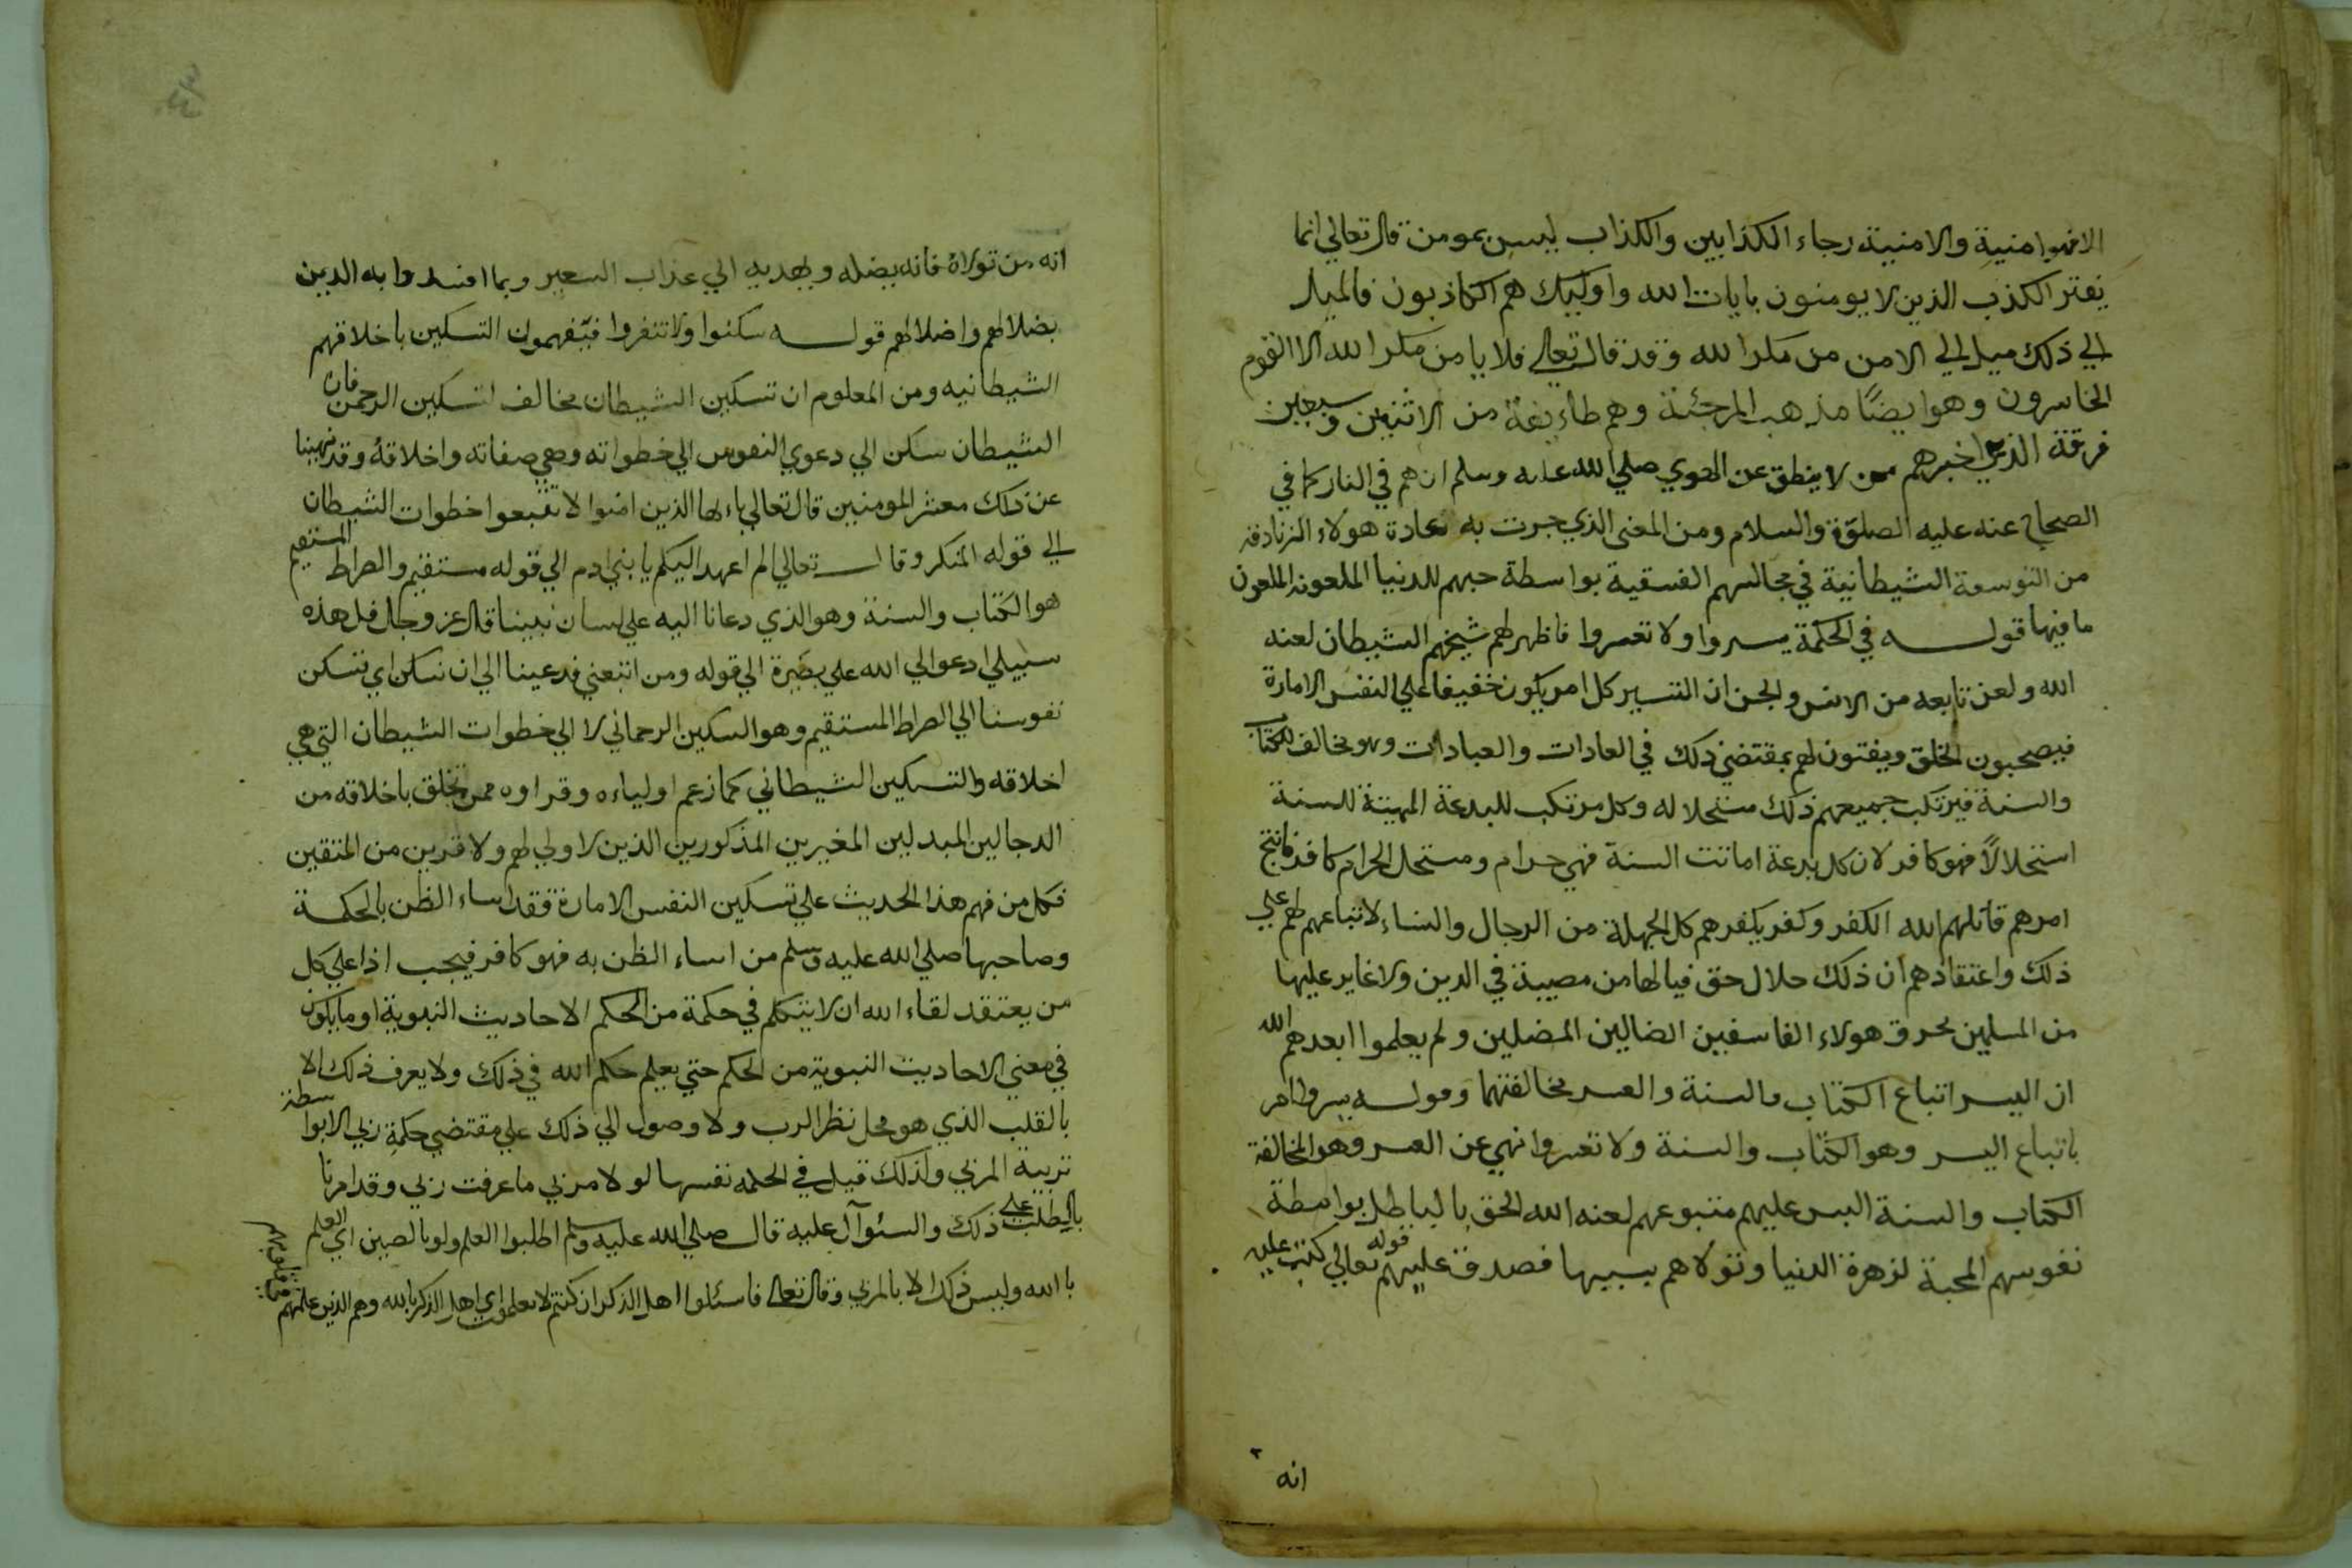 الا فهوا منية والامنية رجاء الكذابين والكذاب ليس بمومن قال تعالى انما
يفتر الكذب الذين لا يومنون بايات الله واوليك هم الكاذبون فالميل
الي ذلك ميل الي الامن من مكر الله وقد قال تعالى فلا يامن مكر الله الا القوم
الخاسرون وهو ايضًا مذهب المرجئة وهم طاءيفة من الاثنين وسبعين
فرقة الذين اخبرهم من لا ينطق عن الهوي صلي الله عليه وسلم انهم في النار كما في
الصحاح عنه عليه الصلوة والسلام ومن المعنى الذي جرت به عادة هولاء الزنادقة
من التوسعة الشيطانية في مجالسهم الفسقية بواسطة حبهم للدنيا الملعونة الملعون
ما فيها قوله في الحكمة يسروا ولا تعسروا فاظهر لهم شيخهم الشيطان لعنه
الله ولعن تابعه من الانس والجن ان التسير كل امر يكون خفيفا علي النفس الامارة
فيصحبون الخلق ويفتون لهم بمقتضي ذلك في العادات والعبادات وهو مخالف للكتاب
والسنة فيرتكب جميعهم ذلك مستحلا له وكل مرتكب للبدعة المميتة للسنة
استحلالاً فهو كافر لان كل بدعة اماتت السنة فهي حرام ومستحل الحرام كافر فانتج
امرهم قاتلهم الله الكفر وكفر بكفرهم كل الجهلة من الرجال والنساء لاتباعهم لهم علي
ذلك واعتقادهم ان ذلك حلال حق فيا لها من مصيبة في الدين ولا غاير عليها
من المسلمين يحرق هولاء الفاسقين الضالين المضلين ولم يعلموا ابعدهم الله
ان اليسر اتباع الكتاب والسنة والعسر مخالفتهما وقوله يسروا امر
باتباع اليسر وهو الكتاب والسنة ولا تعسروا نهي عن العسر وهو المخالفة
الكتاب والسنة البس عليهم متبوعهم لعنه الله الحق بالباطل بواسطة
نفوسهم المحبة لزهرة الدنيا وتولاهم بسببها فصدق عليهم قوله تعالي كتب عليه
انه
انه من تولاه فانه يضله ويهديه الي عذاب السعير وبما افسدوا به الدين
بضلالهم واضلالهم قوله سكنوا ولا تنفروا فيفهمون التسكين باخلاقهم
الشيطانيه ومن المعلوم ان تسكين الشيطان مخالف لتسكين الرحمن فان
الشيطان سكن الي دعوي النفوس الي خطواته وهي صفاته واخلاقه وقد نهينا
عن ذلك معشر المومنين قال تعالي ياءيها الذين امنوا لا تتبعوا خطوات الشيطان
الي قوله المنكر وقال تعالي الم اعهد اليكم يا بني ادم الي قوله مستقيم والصراط المستقيم
هو الكتاب والسنة وهو الذي دعانا اليه علي لسان نبينا قال عز وجل قل هذه
سبيلي ادعوا الي الله علي بصيرة الي قوله ومن اتبعني فدعينا الي ان نسكن اي تسكن
نفوسنا الي الصراط المستقيم وهو السكين الرحماني لا الي خطوات الشيطان التي هي
اخلاقه والتسكين الشيطاني كما زعم اولياءه وقراوه ممن تخلق باخلاقه من
الدجالين المبدلين المغيرين المذكورين الذين لا ولي لهم ولا قرين من المتقين
فكل من فهم هذا الحديث علي تسكين النفس الامارة فقد اساء الظن بالحكمة
وصاحبها صلي الله عليه وسلم من اساء الظن به فهو كافر فيجب اذا علي كل
من يعتقد لقاء الله ان لا يتكلم في حكمة من الحكم الاحاديث النبوية او ما يكون
في معني الاحاديث النبوية من الحكم حتي يعلم حكم الله في ذلك ولا يعرف ذلك الا
بالقلب الذي هو محل نظر الرب ولا وصول الي ذلك علي مقتضي حكمة ربي الا بواسطة
تربية المربي ولذلك قيل في الحكمة نفسها لولا مربي ما عرفت ربي وقد امرنا
بالطلب علي ذلك والسئوآل عليه قال صلي الله عليه وسلم اطلبوا العلم ولو بالصين اي العلم
بالله وليس ذلك الا بالمربي وقال تعالى فاسئلوا اهل الذكر ان كنتم لا تعلمون اي اهل الذكر بالله وهم الذين علمهم